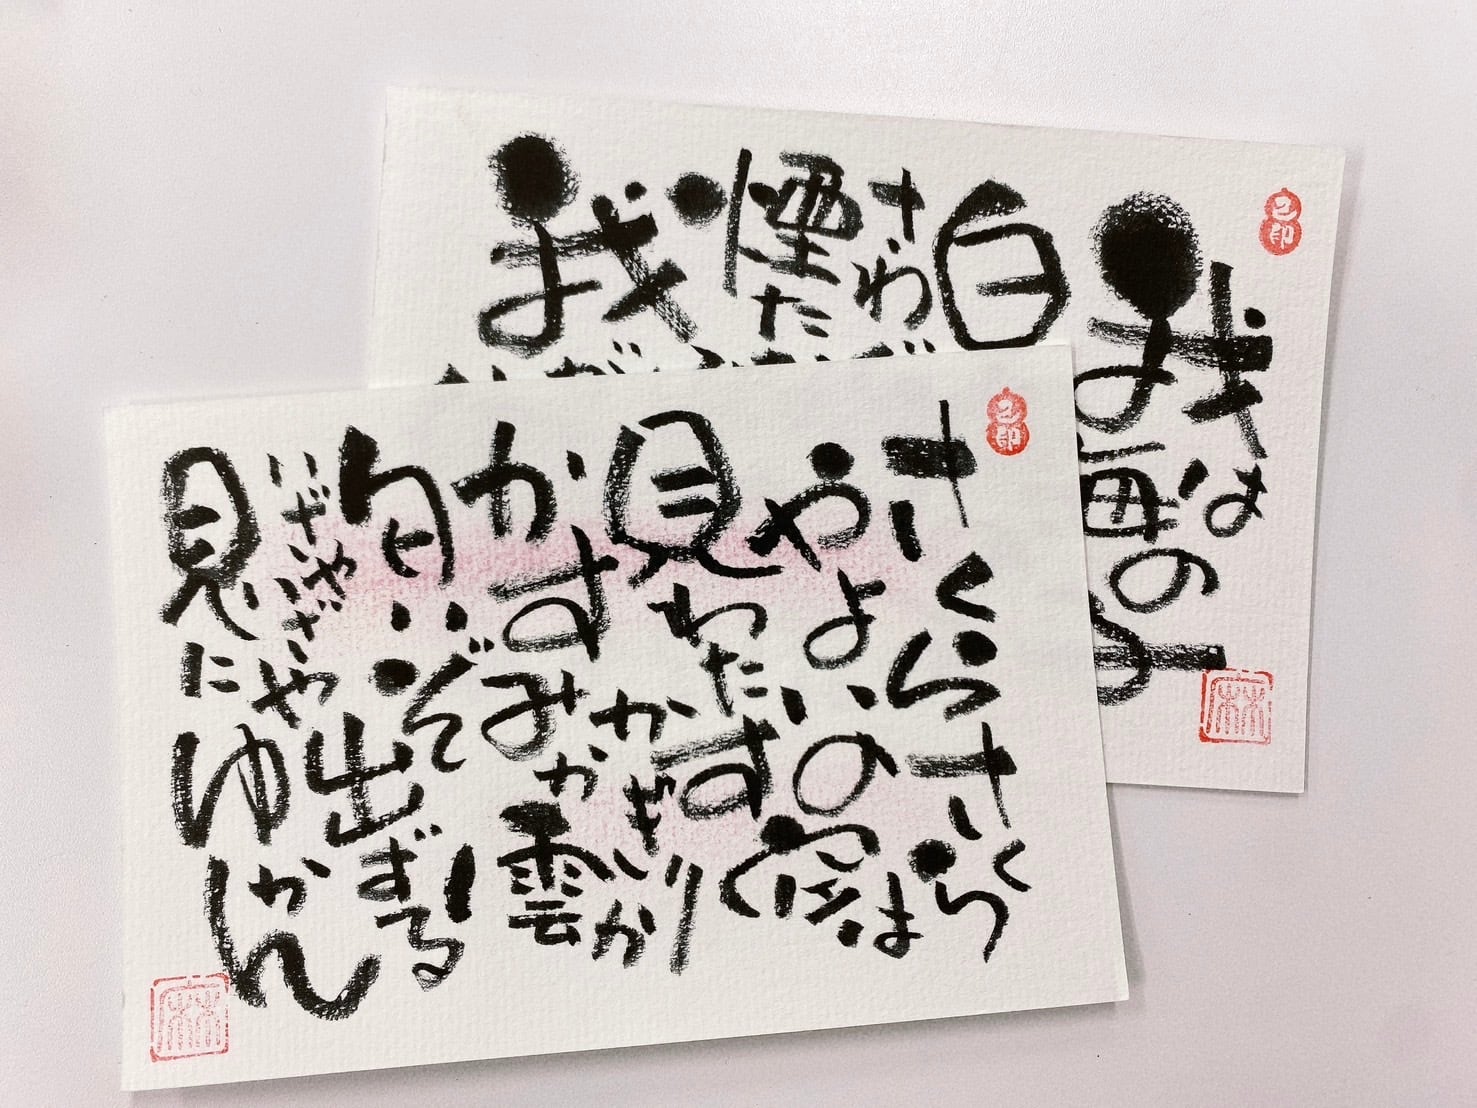 さくらさくら
やよいの空は
見わたす
かぎり
かすみか雲か
匂いぞ出ずる
いざやいざや
見にゆかん
我は海の子
白
さわ
煙た
我
己印
己印